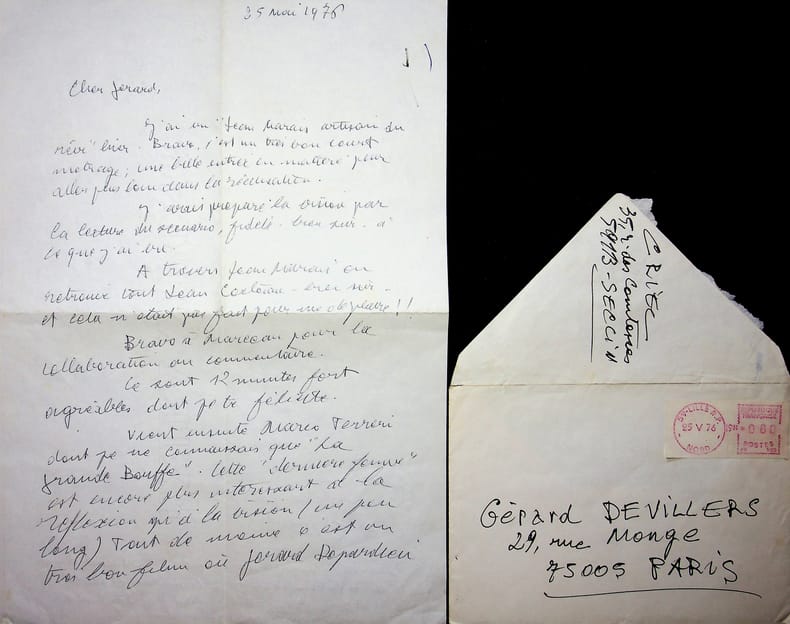 25 Mai 1976
1)
Cher Jérard,
J'ai vu "Jean Marais artisan du
rêve" hier. Bravo, c'est un très bon court
métrage; une belle entrée en matière pour
aller plus loin dans la réalisation.
J'avais préparé la vision par
la lecture du scénario, fidèle - bien sûr - à
ce que j'ai vu.
A travers Jean Marais on
retrouve tout Jean Cocteau - bien sûr -
et cela n'était pas fait pour me déplaire!!
Bravo à Marceau pour la
collaboration au commentaire.
Ce sont 12 minutes fort
agréables dont je te félicite.
Vient ensuite Marco Ferreri
dont je ne connaissais que "La
grande Bouffe". Cette "dernière femme"
est encore plus intéressant à la
réflexion qu'à la vision (un peu
long) Tout de même c'est un
très bon film où Jérard Depardieu
CRIEC
35, r. des Comtesses
59113 - SECLIN
59-LILLE R.P.
25 V 76
NORD
REPUBLIQUE
FRANCAISE
0 80
POSTES
Gérard DEVILLERS
29, rue Monge
75005 PARIS